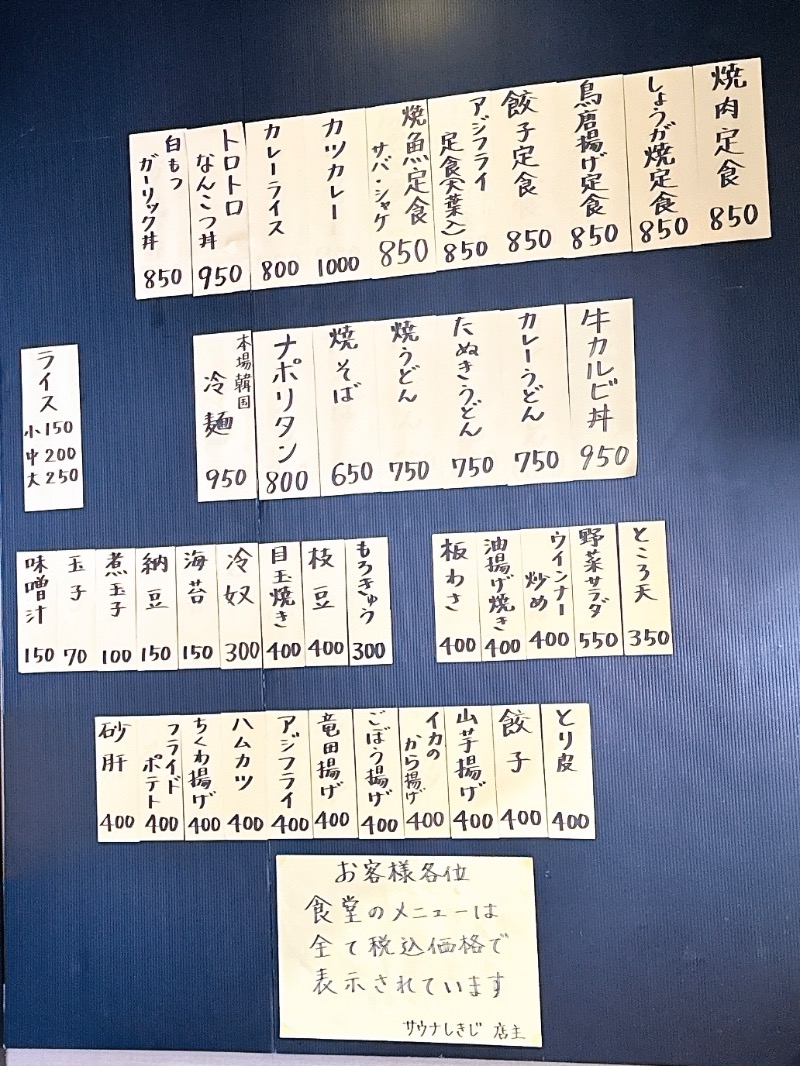 焼肉定食
850
しょうが焼定食
850
鳥唐揚げ定食
850
餃子定食
850
アジフライ
定食(大葉入)
850
焼魚定食
サバ・シャケ
850
カツカレー
1000
カレーライス
800
トロトロ
なんこつ丼
950
白もつ
ガーリック丼
850
牛カルビ丼
950
カレーうどん
750
たぬきうどん
750
焼うどん
750
焼そば
650
ナポリタン
800
本場韓国
冷麺
950
ライス
小150
中200
大250
ところ天
350
野菜サラダ
550
ウインナー
炒め
400
油揚げ焼き
400
板わさ
400
もろきゅう
300
枝豆
400
目玉焼き
400
冷奴
300
海苔
150
納豆
150
煮玉子
100
玉子
70
味噌汁
150
とり皮
400
餃子
400
山芋揚げ
400
イカの
から揚げ
400
ごぼう揚げ
400
竜田揚げ
400
アジフライ
400
ハムカツ
400
ちくわ揚げ
400
フライド
ポテト
400
砂肝
400
お客様各位
食堂のメニューは
全て税込価格で
表示されています
サウナしきじ 店主